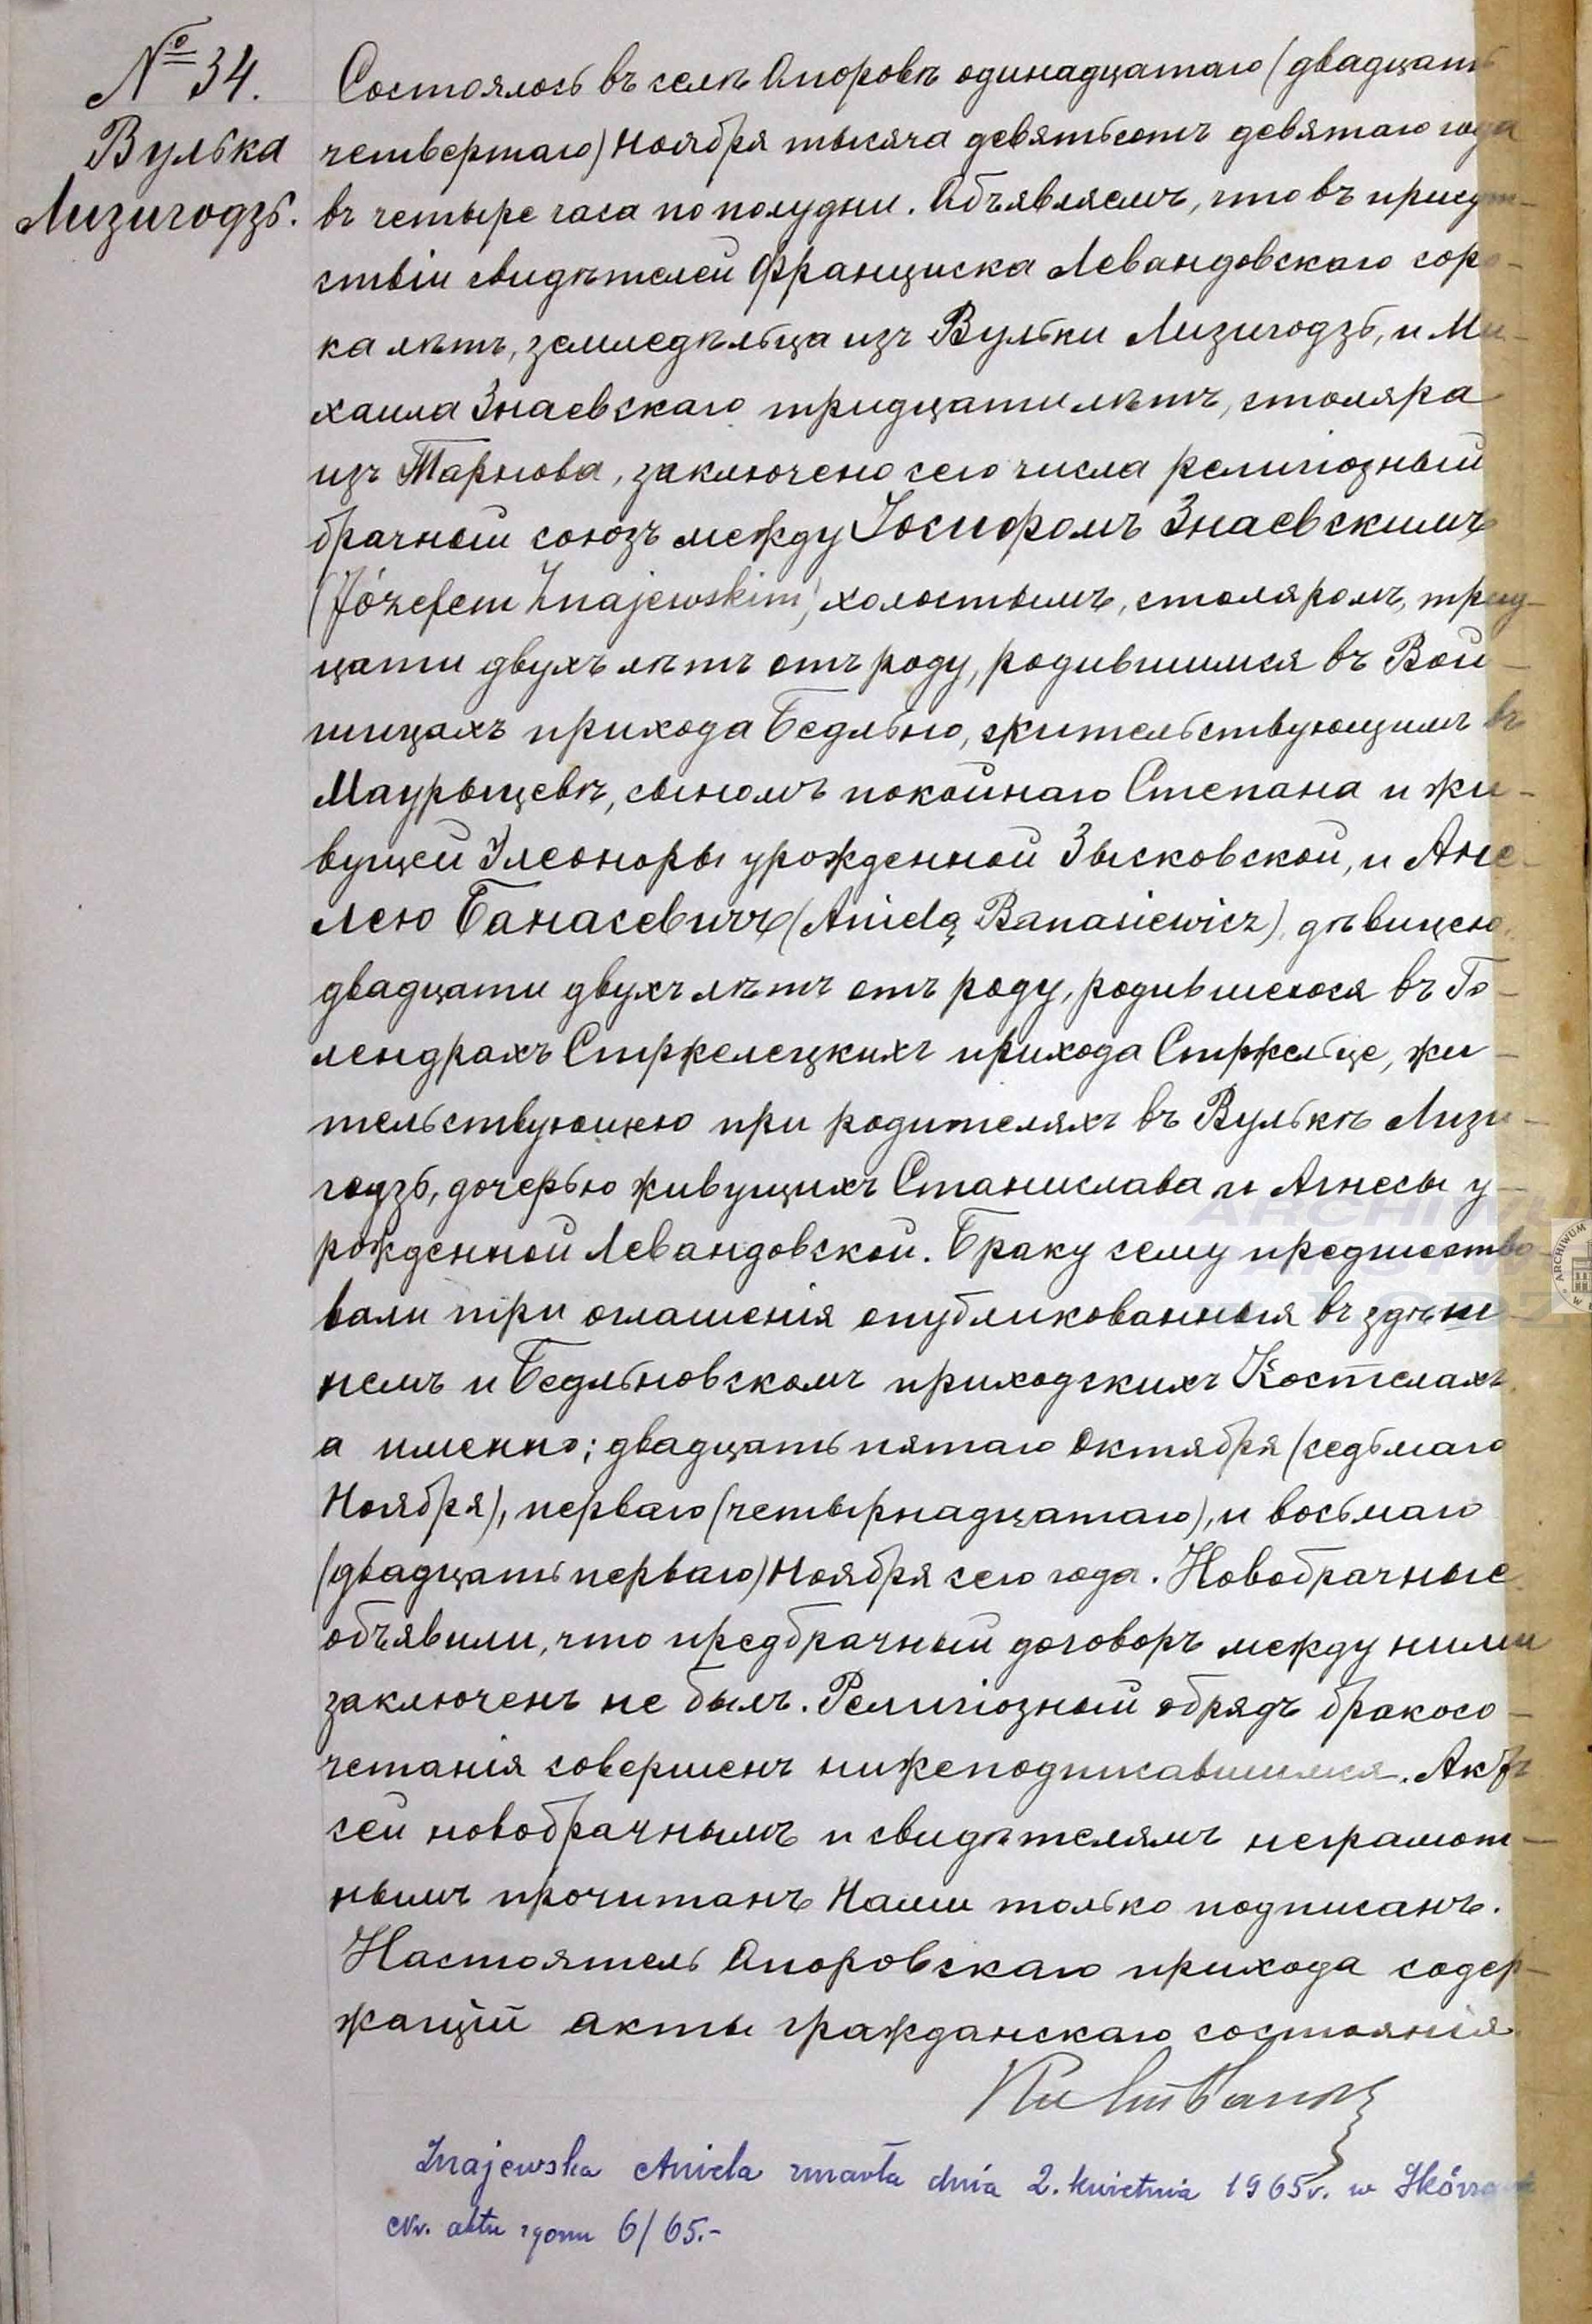 № 34.
Вулька
Лизигодзь.
Состоялось въ селѣ Опоровѣ одинадцатаго (двадцать
четвертаго) Ноября тысяча девятьсотъ девятаго года
въ четыре часа по полудни. Объявляемъ, что въ присут-
ствіи свидѣтелей Франциска Левандовскаго соро-
ка лѣтъ, земледѣльца изъ Вульки Лизигодзь, и Ми-
хаила Знаевскаго тридцати лѣтъ, столяра
изъ Тарнова, заключено сего числа религіозный
брачный союзъ между Іосифомъ Знаевскимъ
(Józefem Znajewskim), холостымъ, столяромъ, трид-
цати двухъ лѣтъ отъ роду, родившимся въ Вой-
шицахъ прихода Бедльно, жительствующимъ въ
Маурыцевѣ, сыномъ покойнаго Степана и жи-
вущей Элеоноры урожденной Зысковской, и Ане-
лею Банасевичъ (Anielą Banasiewicz), дѣвицею,
двадцати двухъ лѣтъ отъ роду, родившеюся въ Го-
лендрахъ Стржелецкихъ прихода Стржельце, жи-
тельствующею при родителяхъ въ Вулькѣ Лизи-
годзь, дочерью живущихъ Станислава и Агнесы у-
рожденной Левандовской. Браку сему предшество-
вали три оглашенія опубликованныя въ здѣш-
немъ и Бедльновскомъ приходскихъ Костелахъ,
а именно; двадцать пятаго Октября (седьмаго
Ноября), перваго (четырнадцатаго), и восьмаго
(двадцать перваго) Ноября сего года. Новобрачные
объявили, что предбрачный договоръ между ними
заключенъ не былъ. Религіозный обрядъ бракосо-
четанія совершенъ нижеподписавшимся. Актъ
сей новобрачнымъ и свидѣтелямъ неграмот-
нымъ прочитанъ Нами только подписанъ.
Настоятель Опоровскаго прихода содер-
жащій акты гражданскаго состоянія.
Znajewska Aniela zmarła dnia 2. kwietnia 1965r. w
Nr. aktu zgonu 6/65.-
ARCHIWUM